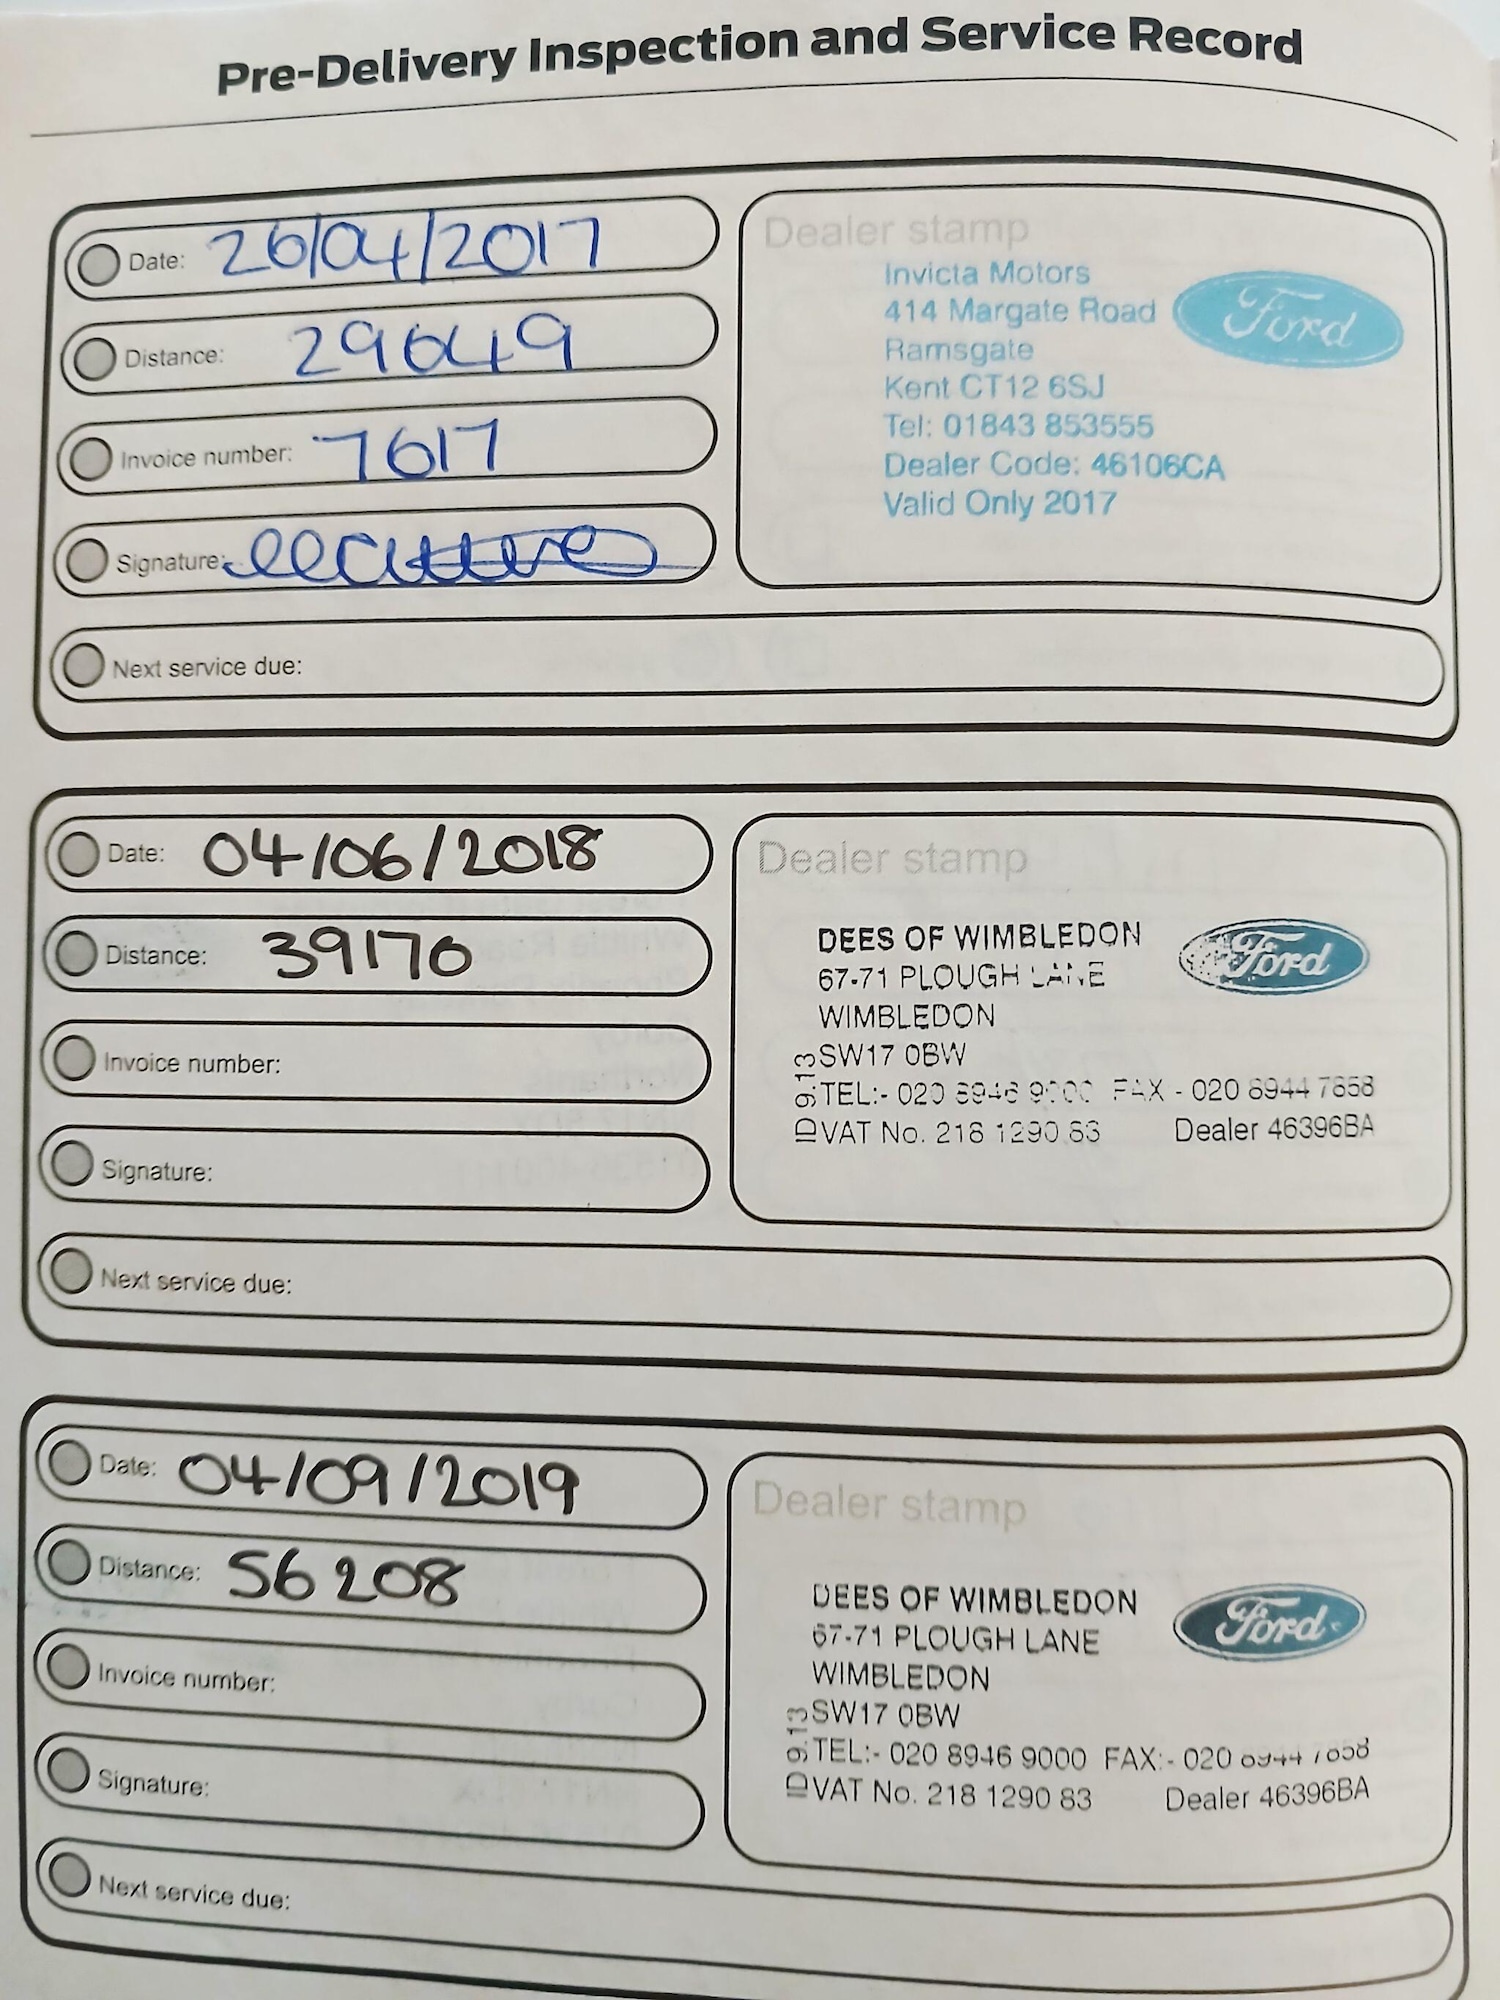 Pre-Delivery Inspection and Service Record
Date: 26/04/2017
Distance: 29649
Invoice number: 7617
Signature:
Next service due:
Dealer stamp
Invicta Motors
414 Margate Road
Ramsgate
Kent CT12 6SJ
Tel: 01843 853555
Dealer Code: 46106CA
Valid Only 2017
Ford
Date: 04/06/2018
Distance: 39170
Invoice number:
Signature:
Next service due:
Dealer stamp
DEES OF WIMBLEDON
67-71 PLOUGH LANE
WIMBLEDON
SW17 0BW
TEL:- 020 8946 9000 FAX - 020 8944 7858
VAT No. 218 1290 83 Dealer 46396BA
ID 9.13
Ford
Date: 04/09/2019
Distance: 56208
Invoice number:
Signature:
Next service due:
Dealer stamp
DEES OF WIMBLEDON
67-71 PLOUGH LANE
WIMBLEDON
SW17 0BW
TEL:- 020 8946 9000 FAX:- 020 8944 7858
VAT No. 218 1290 83 Dealer 46396BA
ID 9.13
Ford